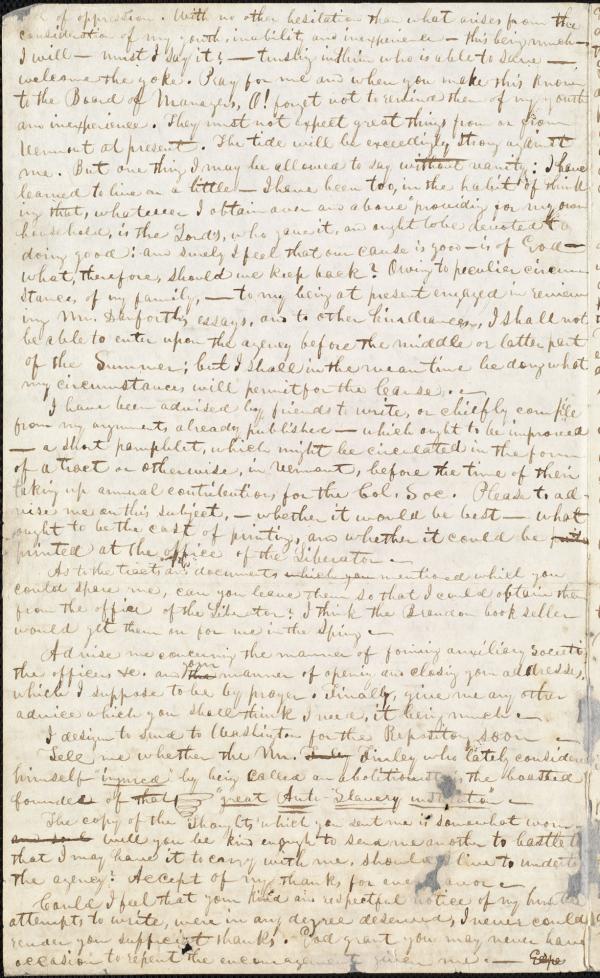 of oppression. With no other hesitation than what arises from the
consideration of my youth, inability, and inexperience — this being much —
I will — must I say it? — trusting in him who is able to save —
welcome the yoke. Pray for me and when you make this known
to the Board of Managers, O! forget not to remind them of my youth
and inexperience. They must not expect great things from or from
Vermont at present. The tide will be exceedingly strong against
me. But one thing I may be allowed to say without vanity: I have
learned to live on a little — I have been too, in the habit of think
ing that, whatever I obtain over and above providing for my own
household, is the Lord's, who gave it, and ought to be devoted to
doing good: and surely I feel that our cause is good — is of God —
what, therefore, should we keep back? Owing to peculiar circum
stances, of my family, — to my being at present engaged in review
ing Mr. Danforth's essays, and to other hindrances, I shall not
be able to enter upon the agency before the middle or latter part
of the Summer; but I shall in the mean time be doing what
my circumstances will permit for the cause. —
I have been advised by friends to write, or chiefly compile
from my argument, already published — which ought to be improved
— a short pamphlet, which might be circulated in the form
of a tract or otherwise, in Vermont, before the time of their
taking up annual contributions for the Col. Soc. Please to ad-
vise me on this subject, — whether it would be best — what
ought to be the cost of printing, and whether it could be
printed at the office of the Liberator —
As to the tracts and documents which you mentioned which you
could spare me, can you leave them so that I could obtain them
from the office of the Liberator? I think the Brandon book seller
would get them on for me in the spring —
Advise me concerning the manner of forming auxiliary Societies,
the officers &c. and your manner of opening and closing your addresses,
which I suppose to be by prayer. Finally, give me any other
advice which you shall think I need, it being much. —
I design to send to Washington for the Repository soon —
Tell me whether the Mr. Finley who lately considered
himself injured by being called an abolitionist is the boasted
founder of that "great Anti-Slavery institution" —
The copy of the "Thoughts" which you sent me is somewhat worn —
will you be kind enough to send me another to Castleton
that I may have it to carry with me, should I live to undertake
the agency? Accept of my thanks for every favor —
Could I feel that your kind and respectful notice of my humble
attempts to write, were in any degree deserved, I never could
render you sufficient thanks. God grant you may never have
occasion to repent the encouragement given me. —